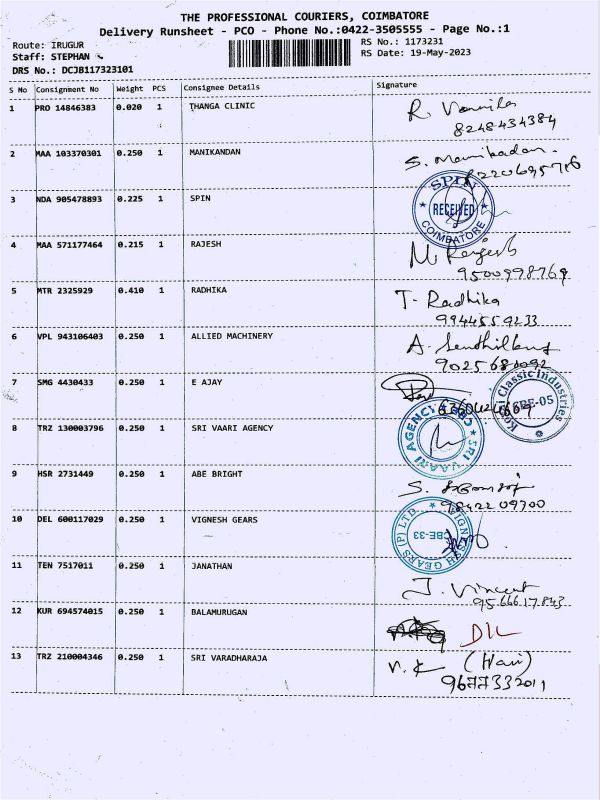 THE PROFESSIONAL COURIERS, COIMBATORE
Delivery Runsheet - PCO - Phone No.:0422-3505555 - Page No.:1
Route: IRUGUR
RS No.: 1173231
Staff: STEPHAN
RS Date: 19-May-2023
DRS No.: DCJB117323101
S No Consignment No Weight PCS Consignee Details Signature
1 PRO 14846383 0.020 1 THANGA CLINIC R.
8248434384
2 MAA 103370301 0.250 1 MANIKANDAN S.
3 NDA 905478893 0.225 1 SPIN SPIN RECEIVED COIMBATORE
4 MAA 571177464 0.215 1 RAJESH M Rajesh
9500998769
5 MTR 2325929 0.410 1 RADHIKA T. Radhika
9944559233
6 VPL 943106403 0.250 1 ALLIED MACHINERY A.
9025680092
7 SMG 4430433 0.250 1 E AJAY
Classic Industries CBE-05
8 TRZ 130003796 0.250 1 SRI VAARI AGENCY SRI VAARI AGENCY
9 HSR 2731449 0.250 1 ABE BRIGHT S.
9842209700
10 DEL 600117029 0.250 1 VIGNESH GEARS VIGNESH GEARS (P) LTD. CBE-33
11 TEN 7517011 0.250 1 JANATHAN J. Vincent
9566617843
12 KUR 694574015 0.250 1 BALAMURUGAN
13 TRZ 210004346 0.250 1 SRI VARADHARAJA V. K (Hari)
9677332011